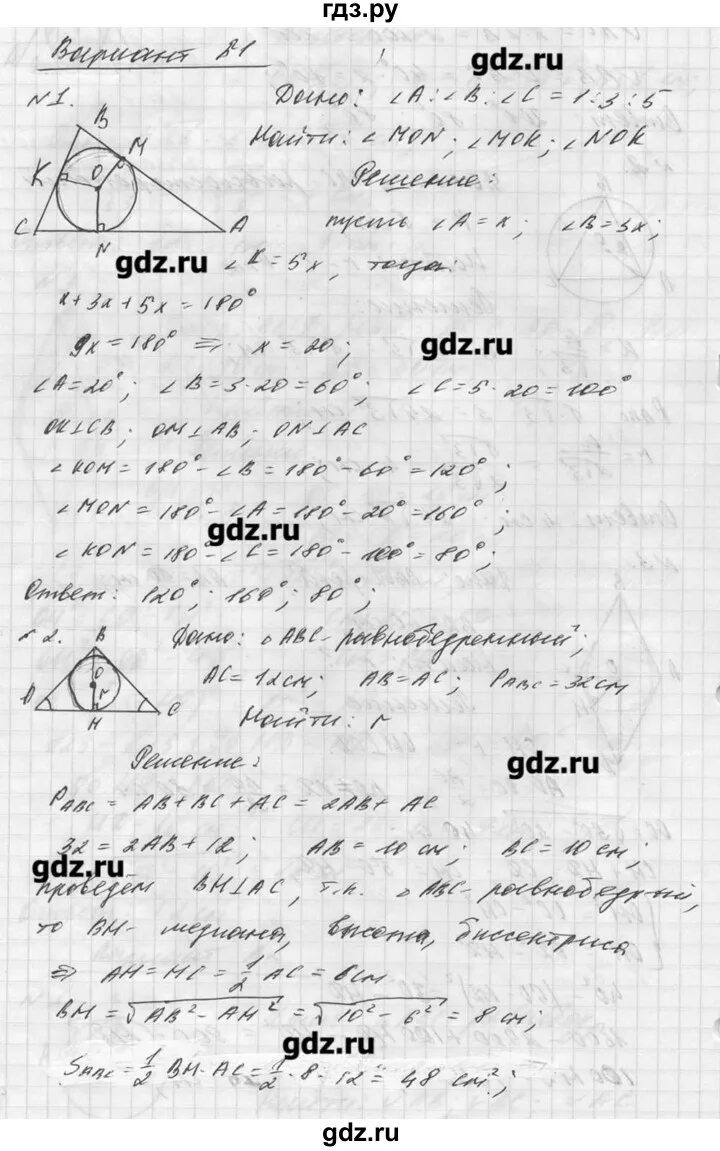 гдз.ру
Вариант 21
gdz.ru
№1.
Дано: ∠A:∠B:∠C = 1:3:5
Найти: ∠MON; ∠MOK; ∠NOK
Решение:
B
M
K
O
C
N
A
пусть ∠A = x; ∠B = 3x;
gdz.ru
∠K = 5x, тогда:
x + 3x + 5x = 180°
9x = 180° ⇒ x = 20;
gdz.ru
∠A = 20°; ∠B = 3·20 = 60°; ∠C = 5·20 = 100°
OK⊥CB; OM⊥AB; ON⊥AC
∠KOM = 180° - ∠B = 180° - 60° = 120°;
∠MON = 180° - ∠A = 180° - 20° = 160°;
gdz.ru
∠KON = 180° - ∠C = 180° - 100° = 80°;
Ответ: 120°; 160°; 80°;
№2.
Дано: △ABC - равнобедренный;
AC = 12 см; AB = AC; P_ABC = 32 см
Найти: r
B
O
r
H
C
Решение:
gdz.ru
P_ABC = AB + BC + AC = 2AB + AC
32 = 2AB + 12; AB = 10 см; BC = 10 см;
gdz.ru
проведём BH⊥AC, т.к. △ABC - равнобедрый,
то BH - медиана, высота, биссектриса
⇒ AH = HC = 1/2 AC = 6 см
BH = √AB² - AH² = √10² - 6² = 8 см;
gdz.ru
S_ABC = 1/2 BH·AC = 1/2·8·12 = 48 см²;
gdz.ru